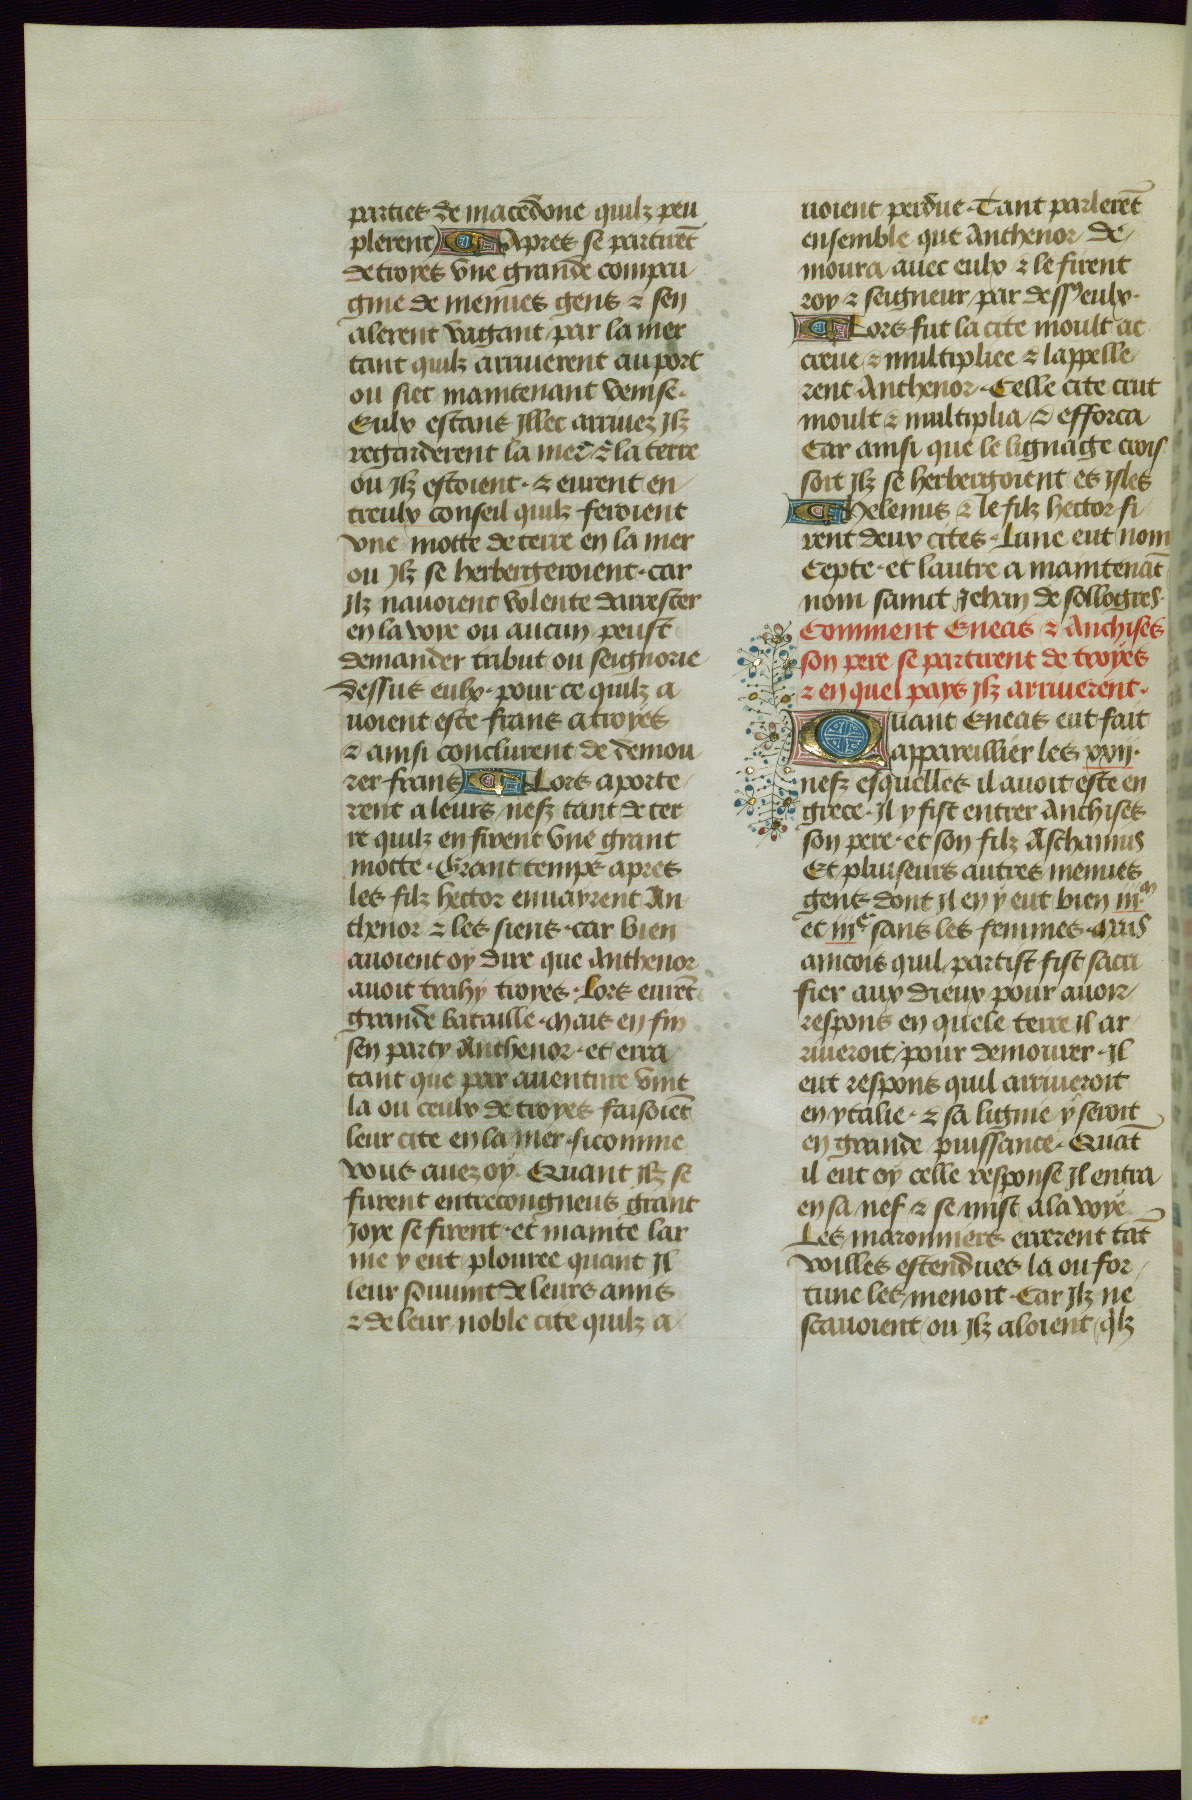 parties de macedone quilz peu
plerent) Apres se partirēt
de troyes vne grande compai
gnie de menues gens ⁊ sen
alerent vagant par la mer
tant quilz arriuerent au port
ou siet maintenant venise.
Eulx estans Jllec arriuez Jlz
regarderent la mer ⁊ la terre
ou Jlz estoient. ⁊ eurent en
treulx conseil quilz feroient
vne motte de terre en la mer
ou Jlz se herbergeroient. car
Jlz nauoient volente darrester
en la voye ou aucun peust
demander tribut ou seignorie
dessus eulx. pour ce quilz a
uoient este frans a troyes
⁊ ainsi conclurent de demou
rer frans Lors aporte
rent a leurs nefz tant de ter
re quilz en firent vne grant
motte. Grant temps apres
les filz hector enuayrent An
thenor ⁊ les siens. car bien
auoient oy dire que Anthenor
auoit trahy troyes. Lors eurēt
grande bataille. Mais en fin
sen party Anthenor. et erra
tant que par auenture vint
la ou ceulx de troyes faisoiēt
leur cite en la mer. sicomme
vous auez oy. Quant Jlz se
furent entrecongneus grant
Joye se firent. et mainte lar
me y eut plouree quant Jl
leur souuint de leurs amis
⁊ de leur noble cite quilz a
uoient perdue. Tant parlerēt
ensemble que Anthenor de
moura auec eulx ⁊ le firent
roy ⁊ seigneur par dessꝰ eulx.
Lors fut la cite moult ac
creue ⁊ multipliee ⁊ lappelle
rent Anthenor. Celle cite crut
moult ⁊ multiplia ⁊ efforca
Car ainsi que le lignage crois
soit Jlz se herbergoient es Jsles
Helenus ⁊ le filz hector fi
rent deux cites. Lune eut nom
Cepte. et lautre a maintenāt
nom sainct Jehan de sollogres.
Comment Eneas ⁊ Anchises
son pere se partirent de troyes
⁊ en quel pays Jlz arriuerent.
Quant Eneas eut fait
appareillier les xxij.
nefz esquelles il auoit este en
grece. Jl y fist entrer Anchises
son pere. et son filz Aschanius
Et pluiseurs autres menues
gens dont Jl en y eut bien iij.ᵐ
et iijᶜ sans les femmes. Mais
aincois quil partist fist sacri
fier aux dieux pour auoir
respons en quele terre il ar
riueroit pour demourer. Jl
eut respons quil arriueroit
en ytalie. ⁊ sa lignie y seroit
en grande puissance. Quāt
il eut oy celle response Jl entra
en sa nef ⁊ se mist a la voye
Les maronniers errerent tāt
voilles estendues la ou for
tune les menoit. Car Jlz ne
scauoient ou Jlz aloient qͥlz